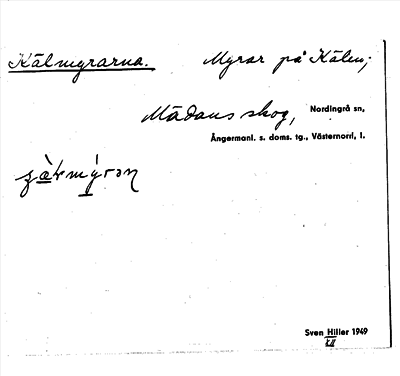 Kälmyrarna. Myrar på Kälen;
Mädans skog, Nordingrå sn,
Ångermanl. s. doms. tg., Västernorrl, l.
Sven Hiller 1949
KII